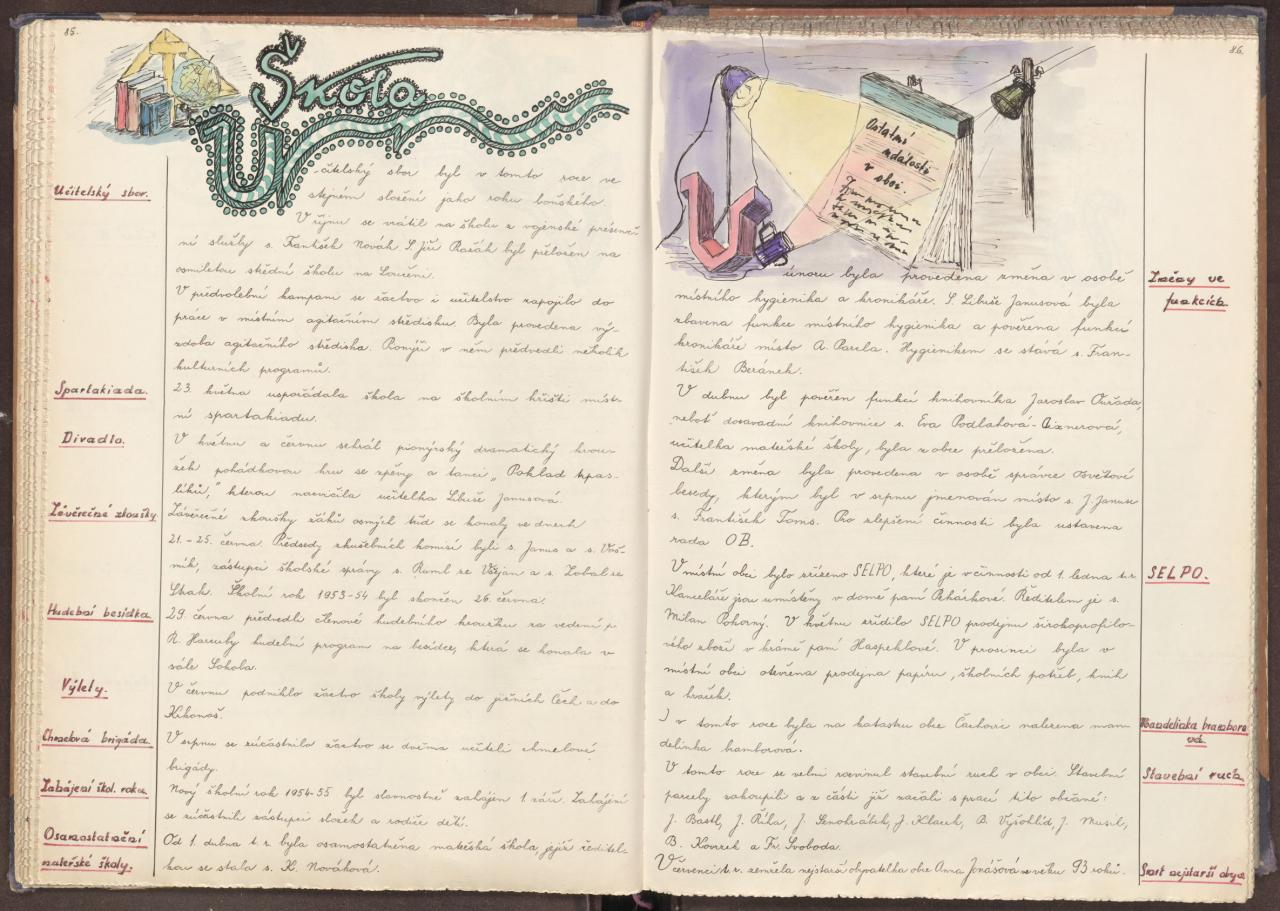 85.
Škola
Učitelský sbor.
Učitelský sbor byl v tomto roce ve
stejném složení jako roku loňského.
V říjnu se vrátil na školu z vojenské presenč-
ní služby s. František Novák. S. Jiří byl přeložen na
osmiletou střední školu na Loučeni.
V předvolební kampani se žactvo i učitelstvo zapojilo do
práce v místním agitačním středisku. Byla provedena vý-
zdoba agitačního střediska. Pionýři v něm předvedli několik
kulturních programů.
Spartakiada.
23. května uspořádala škola na školním hřišti míst-
ní spartakiadu.
Divadlo.
V květnu a červnu sehrál pionýrský dramatický krou-
žek pohádkovou hru se zpěvy a tanci „Poklad kpas-
líků,” kterou nacvičila učitelka Libuše Janusová.
Závěrečné zkoušky.
Závěrečné zkoušky žáků osmých tříd se konaly ve dnech
21. - 25. června. Předsedy zkušebních komisí byli s. Janus a s. Voš-
mik, zástupci školské správy s. Ruml ze Všejan a s. Zobal ze
Strak. Školní rok 1953-54 byl skončen 26. června.
Hudební besídka.
29. června předvedli členové hudebního kroužku za vedení p.
R. Harcuby hudební program na besídce, která se konala v
sále Sokola.
Výlety.
V červnu podniklo žactvo školy výlety do jižních Čech a do
Krkonoš.
Chmelová brigáda.
V srpnu se zúčastnilo žactvo se dvěma učiteli chmelové
brigády.
Zahájení škol. roku
Nový školní rok 1954-55 byl slavnostně zahájen 1. září. Zahájení
se zúčastnili zástupci složek a rodiče dětí.
Osamostatnění
mateřské školy.
Od 1. dubna t. r. byla osamostatněna mateřská škola, jejíž ředitel-
kou se stala s. K. Nováková.
86.
Ostatní
události
v obci.
V únoru byla provedena změna v osobě
Změny ve
funkcích.
místního hygienika a kronikáře. S. Libuše Janusová byla
zbavena funkce místního hygienika a pověřena funkcí
kronikáře místo A. Hygienikem se stává s. Fran-
tišek Beránek.
V dubnu byl pověřen funkcí knihovníka Jaroslav
neboť dosavadní knihovnice s. Eva Podlahová-
učitelka mateřské školy, byla z obce přeložena.
Další změna byla provedena v osobě správce Osvětové
besedy, kterým byl v srpnu jmenován místo s. J. Januse
s. František Toms. Pro zlepšení činnosti byla ustavena
rada OB.
SELPO.
V místní obci bylo zřízeno SELPO, které je v činnosti od 1. ledna t. r.
Kanceláře jsou umístěny v domě paní Řeháčkové. Ředitelem je s.
Milan Pokorný. V květnu zřídilo SELPO prodejnu širokoprofilo-
vého zboží v krámě paní Haspeklové. V prosinci byla v
místní obci otevřena prodejna papíru, školních potřeb, knih
a hraček.
Mandelinka brambore
vá.
I v tomto roce byla na katastru obce Čachovic nalezena man-
delinka bramborová.
Stavební ruch
V tomto roce se velmi rozvinul stavební ruch v obci. Stavební
parcely zakoupili a z části již začali s prací tito občané:
J. Bastl, J. Říla, J. Senohrábek, J. Klauch, B. Vyšohlíd, J. Musil,
B. Kovrzek a Fr. Svoboda.
Smrt nejstarší obyv.
V červenci t. r. zemřela nejstarší obyvatelka obce Anna Jonášová ve věku 93 roků.